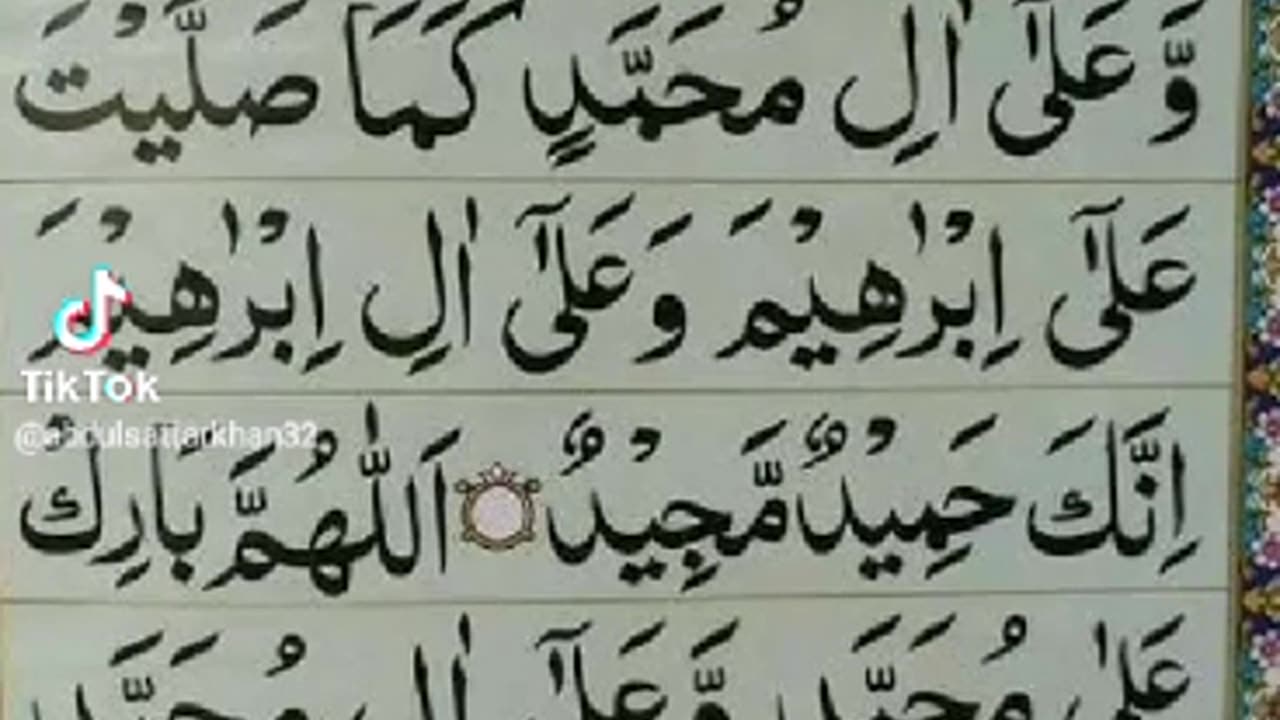 وَّعَلٰٓى اٰلِ مُحَمَّدٍ كَمَا صَلَّيْتَ
عَلٰٓى اِبْرٰهِيْمَ وَعَلٰٓى اٰلِ اِبْرٰهِيْمَ
اِنَّكَ حَمِيْدٌ مَّجِيْدٌ اَللّٰهُمَّ بَارِكْ
عَلٰى مُحَمَّدٍ وَّعَلٰٓى اٰلِ مُحَمَّدٍ
TikTok
@abdulsattarkhan32